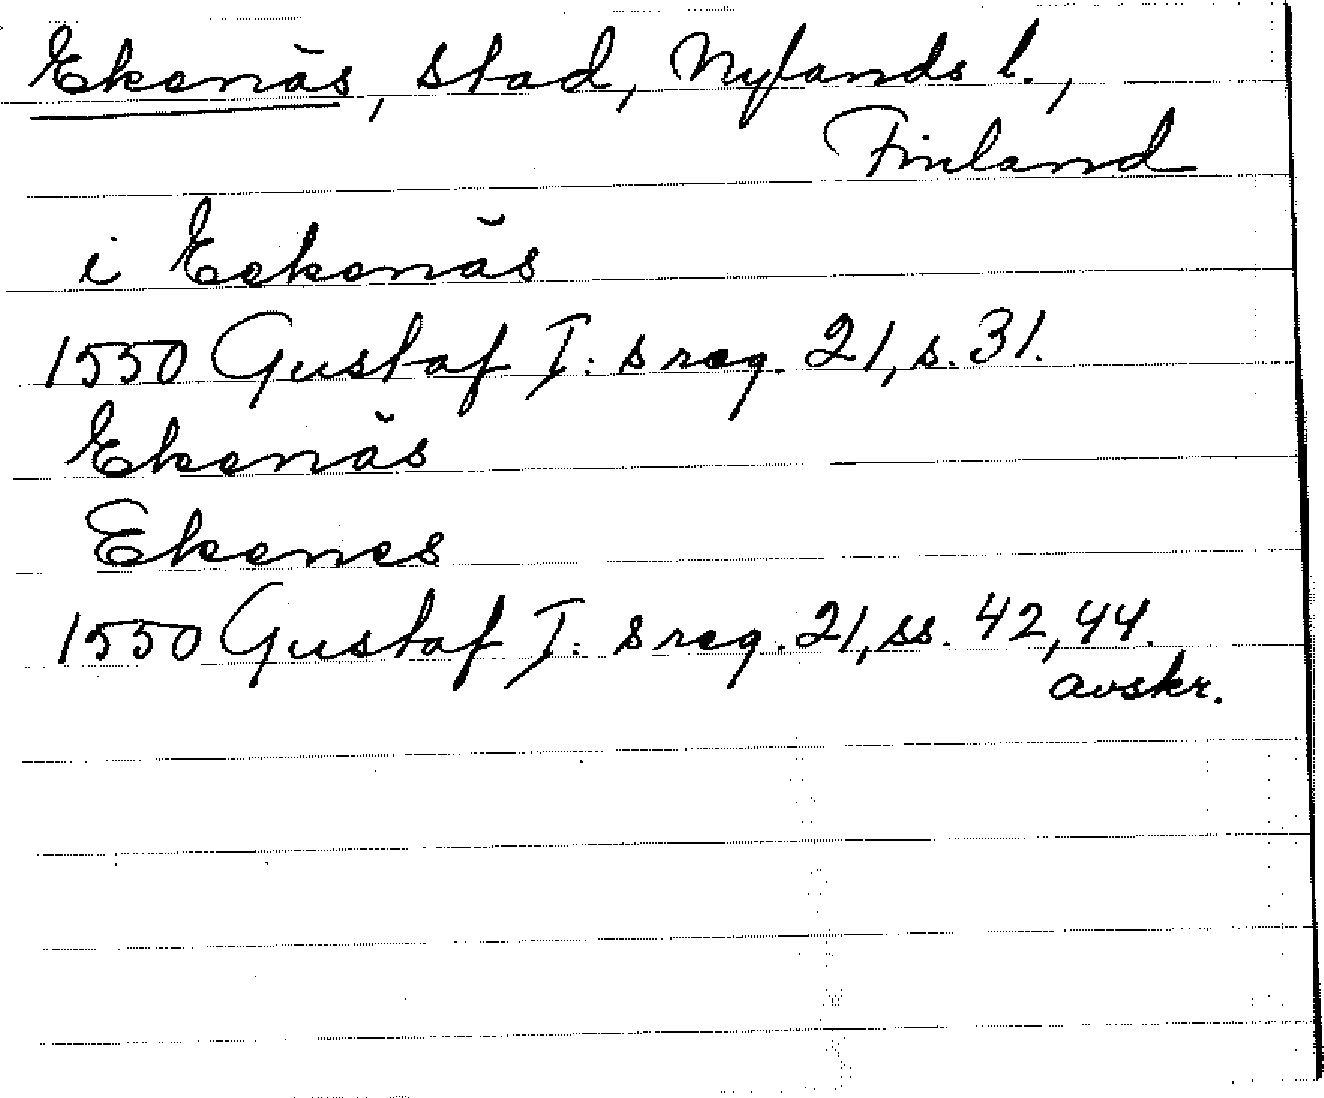 Ekenäs, stad, Nylands l.,
Finland
i Eekenäs
1550 Gustaf I: s reg. 21, s. 31.
Ekenäs
Ekenes
1550 Gustaf I: s reg. 21, ss. 42, 44.
avskr.